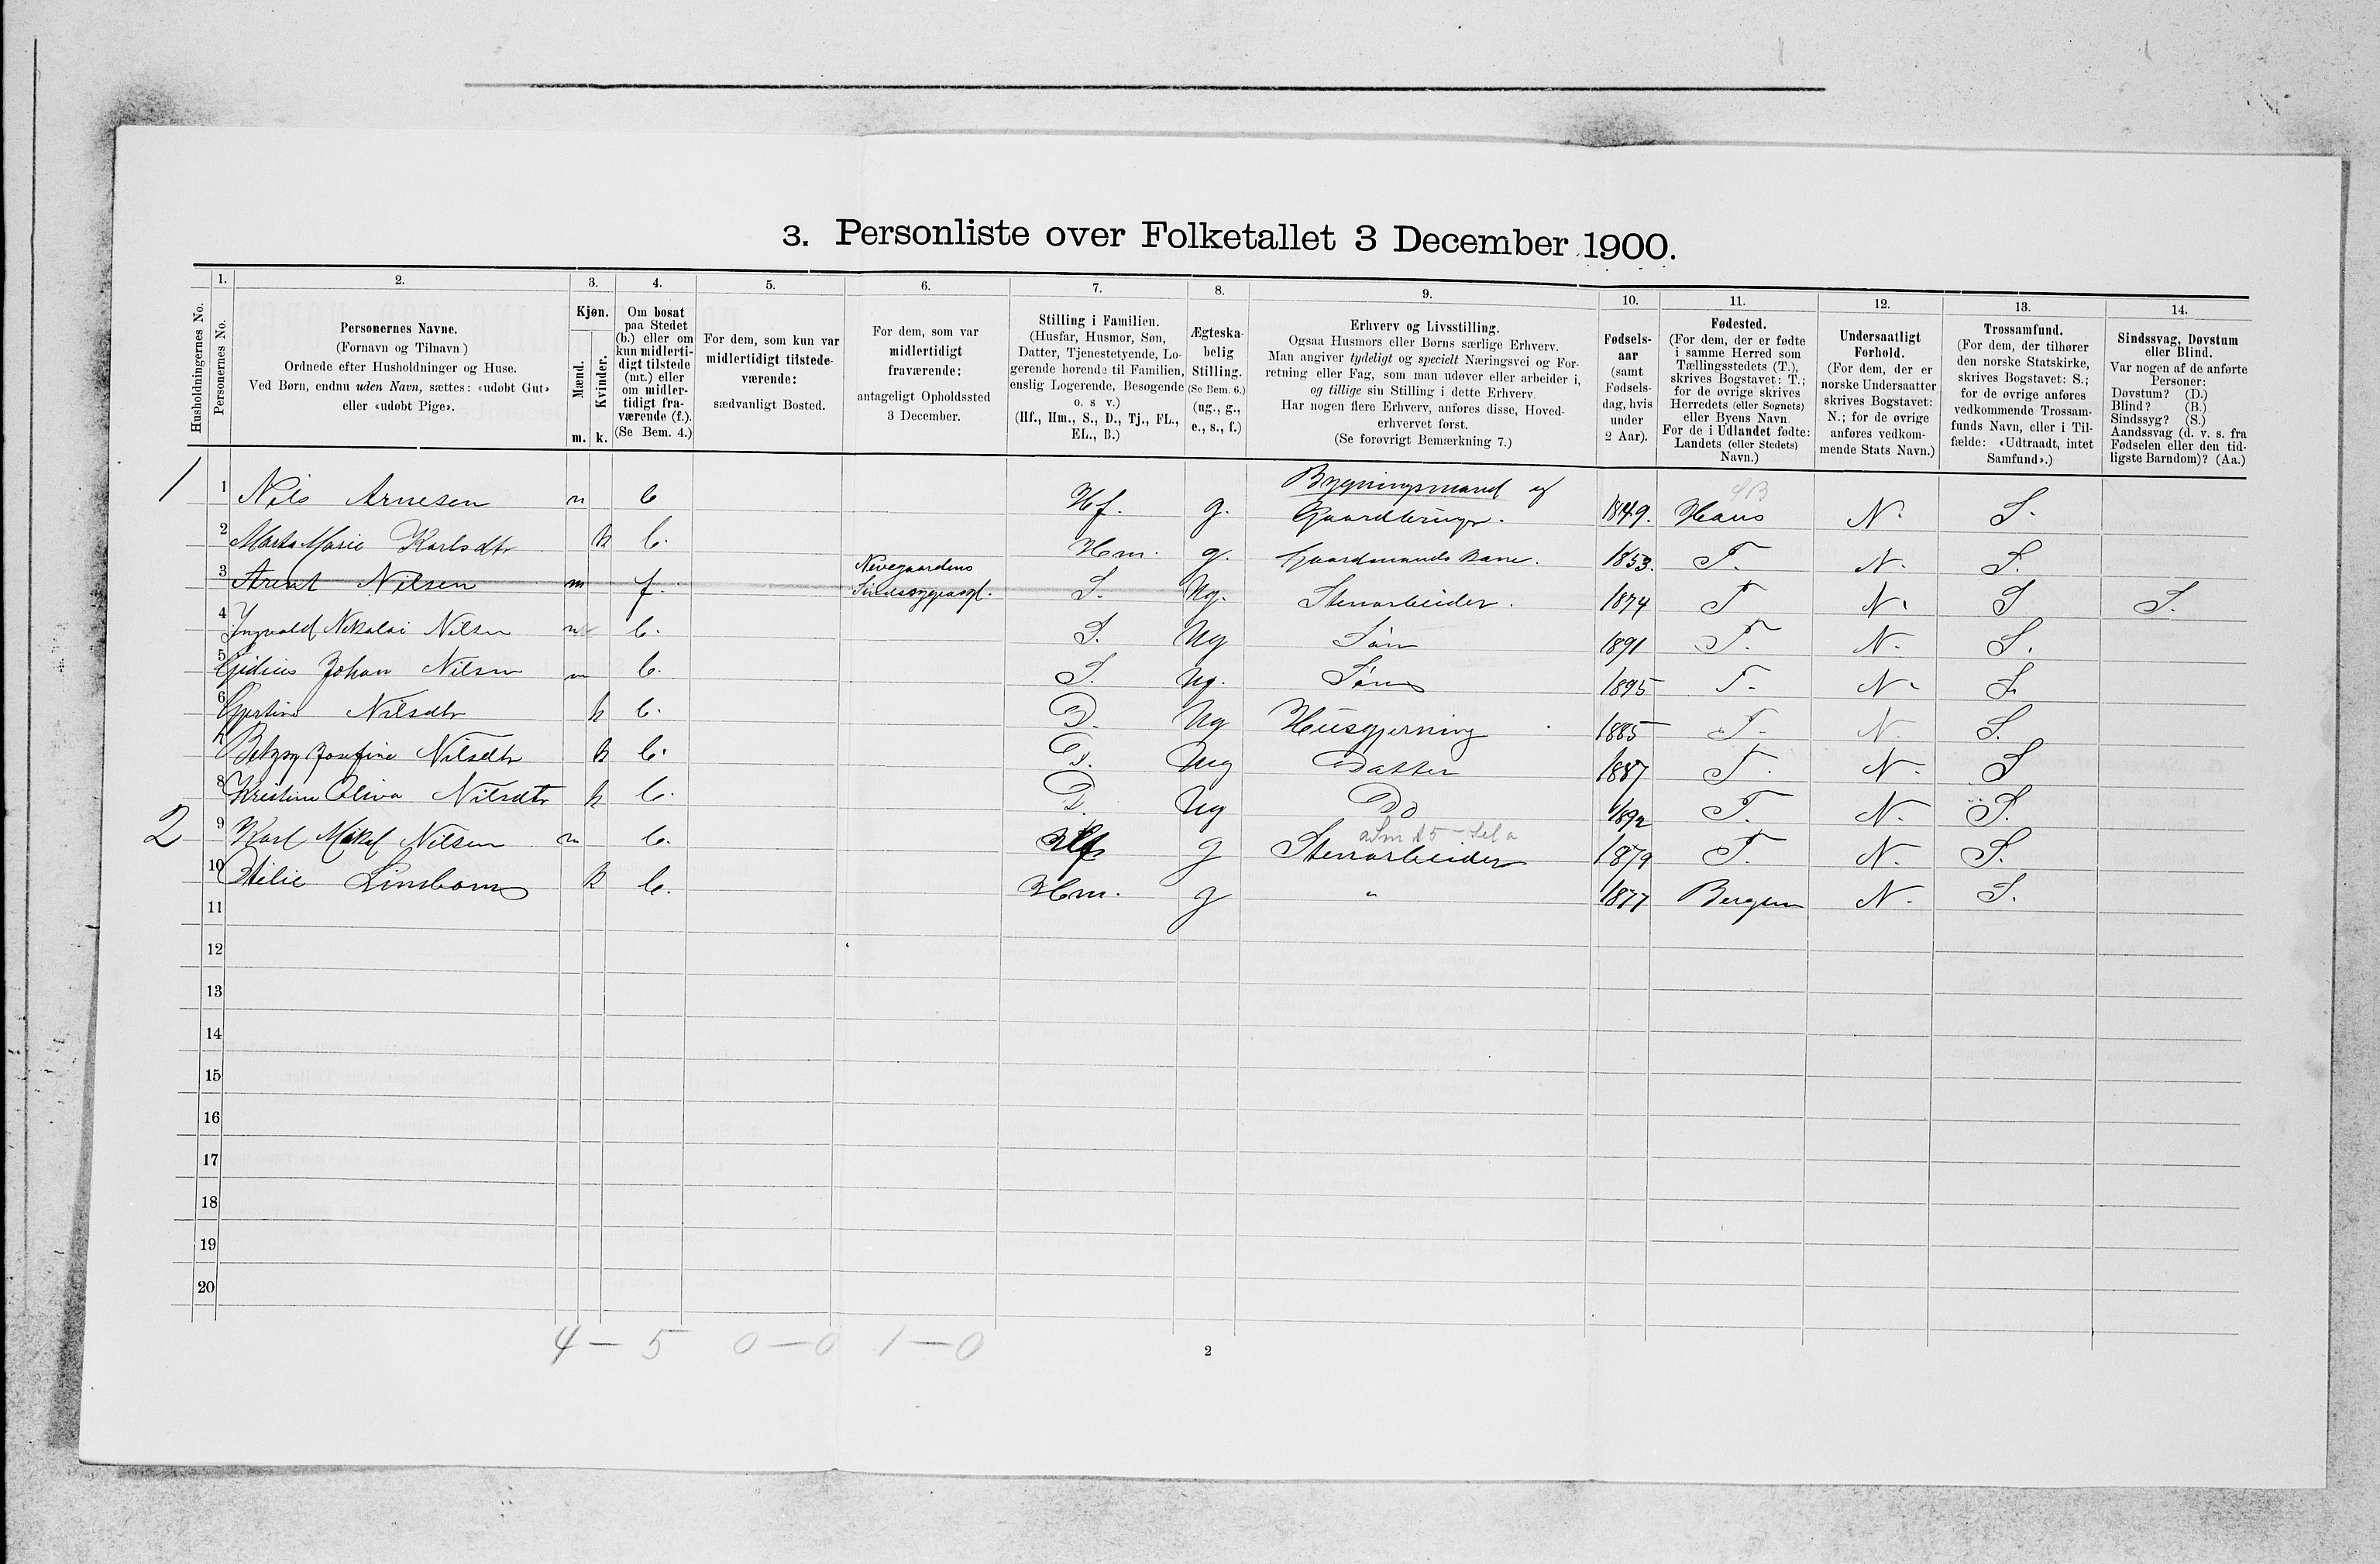 3. Personliste over Folketallet 3 December 1900.
Husholdningernes No.
1.
Personernes No.
2.
Personernes Navne.
(Fornavn og Tilnavn)
Ordnede efter Husholdninger og Huse.
Ved Børn, endnu uden Navn, sættes: «udøbt Gut»
eller «udøbt Pige».
3.
Kjøn.
Mænd.
m.
Kvinder.
k.
4.
Om bosat
paa Stedet
(b.) eller om
kun midlerti-
digt tilstede
(mt.) eller
om midler-
tidigt fra-
værende (f.).
(Se Bem. 4.)
5.
For dem, som kun var
midlertidigt tilstede-
værende:
sædvanligt Bosted.
6.
For dem, som var
midlertidigt
fraværende:
antageligt Opholdssted
3 December.
7.
Stilling i Familien.
(Husfar, Husmor, Søn,
Datter, Tjenestetyende, Lo-
gerende hørende til Familien,
enslig Logerende, Besøgende
o. s v.)
(Hf., Hm., S., D., Tj., FL.,
EL., B.)
8.
Ægteska-
belig
Stilling.
(Se Bem. 6.)
(ug., g.,
e., s., f.)
9.
Erhverv og Livsstilling.
Ogsaa Husmors eller Børns særlige Erhverv.
Man angiver tydeligt og specielt Næringsvei og For-
retning eller Fag, som man udøver eller arbeider i,
og tillige sin Stilling i dette Erhverv.
Har nogen flere Erhverv, anføres disse, Hoved-
erhvervet først.
(Se forøvrigt Bemærkning 7.)
10.
Fødsels-
aar
(samt
Fødsels-
dag, hvis
under
2 Aar).
11.
Fødested.
(For dem, der er fødte
i samme Herred som
Tællingsstedets (T.),
skrives Bogstavet: T.;
for de øvrige skrives
Herredets (eller Sognets)
eller Byens Navn.
For de i Udlandet fødte:
Landets (eller Stedets)
Navn.)
12.
Undersaatligt
Forhold.
(For dem, der er
norske Undersaatter
skrives Bogstavet:
N.; for de øvrige
anføres vedkom-
mende Stats Navn.)
13.
Trossamfund.
(For dem, der tilhører
den norske Statskirke,
skrives Bogstavet: S.;
for de øvrige anføres
vedkommende Trossam-
funds Navn, eller i Til-
fælde: «Udtraadt, intet
Samfund».)
14.
Sindssvag, Døvstum
eller Blind.
Var nogen af de anførte
Personer:
Døvstum? (D.)
Blind? (B.)
Sindssyg? (S.)
Aandssvag (d. v. s. fra
Fødselen eller den tid-
ligste Barndom)? (Aa.)
1 1 Nils Arnesen m b Hf. g. Bygningsmand og Gaardbruger. 1849. Haus 4B N. S.
2 Marta Marie Karlsdtr k b. Hm. g. Gaardmands kone. 1853. T. N. S.
3 Arent Nilsen m f. Nevegaardens Sindssygeasyl. S. Ug. Stenarbeider. 1874 T N. S S.
4 Ingvald Nikolai Nilsen m b. S. Ug Søn 1891 T. N. S.
5 Gidius Johan Nilsen m b. S. Ug. Søn 1895 T. N. S.
6 Gjertine Nilsdtr k b. D. Ug Husgjerning 1885 T. N. S.
7 Josefine Nilsdtr k b. D. Ug Datter 1887 T. N. S
8 Kristine Oliva Nilsdtr k b. D. Ug Do 1892 T. N. S.
2 9 Karl Mikal Nilsen m b. Hf g Stenarbeider 1879 T. N. S.
10 Otilie Lindbom k b. Hm. g " 1877 Bergen N. S.
11
12
13
14
15
16
17
18
19
20
4 — 5 0 — 0 1 — 0
2